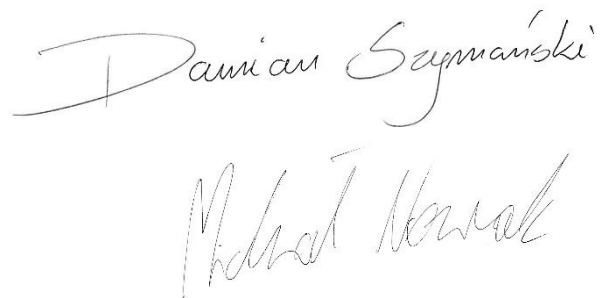 Damian Szymański
Michał Nowak